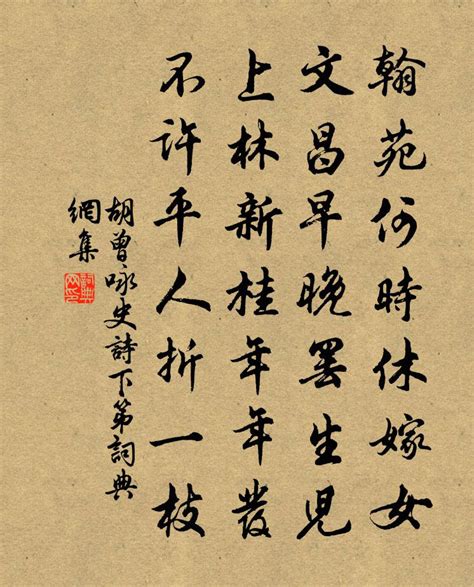 翰苑何時休嫁女
文昌早晚罷生兒
上林新桂年年發
不許平人折一枝
胡曾咏史詩下第詞典
網集
詞典網印